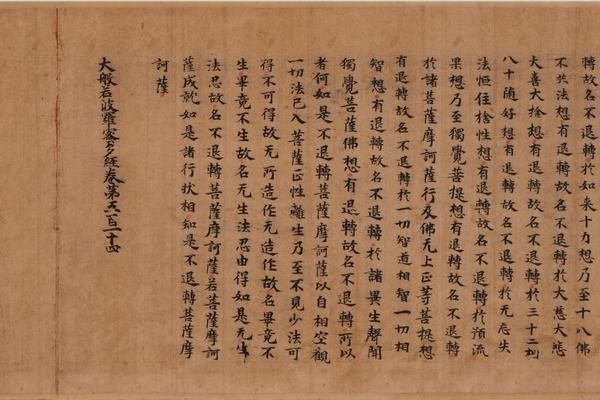 轉故名不退轉於如来十力想乃至十八佛
不共法想有退轉故名不退轉於大慈大悲
大喜大捨想有退轉故名不退轉於三十二相
八十随好想有退轉故名不退轉於无忘失
法恒住捨性想有退轉故名不退轉於預流
果想乃至獨覺菩提想有退轉故名不退轉
於諸菩薩摩訶薩行及佛无上正等菩提想
有退轉故名不退轉於一切智道相智一切相
智想有退轉故名不退轉於諸異生聲聞
獨覺菩薩佛想有退轉故名不退轉所以
者何如是不退轉菩薩摩訶薩以自相空觀
一切法已入菩薩正性離生乃至不見少法可
得不可得故无所造作无造作故名畢竟不
生畢竟不生故名无生法忍由得如是无生
法忍故名不退轉菩薩摩訶薩若菩薩摩訶
薩成就如是諸行狀相知是不退轉菩薩摩
訶薩
大般若波羅蜜多經卷第百二十四